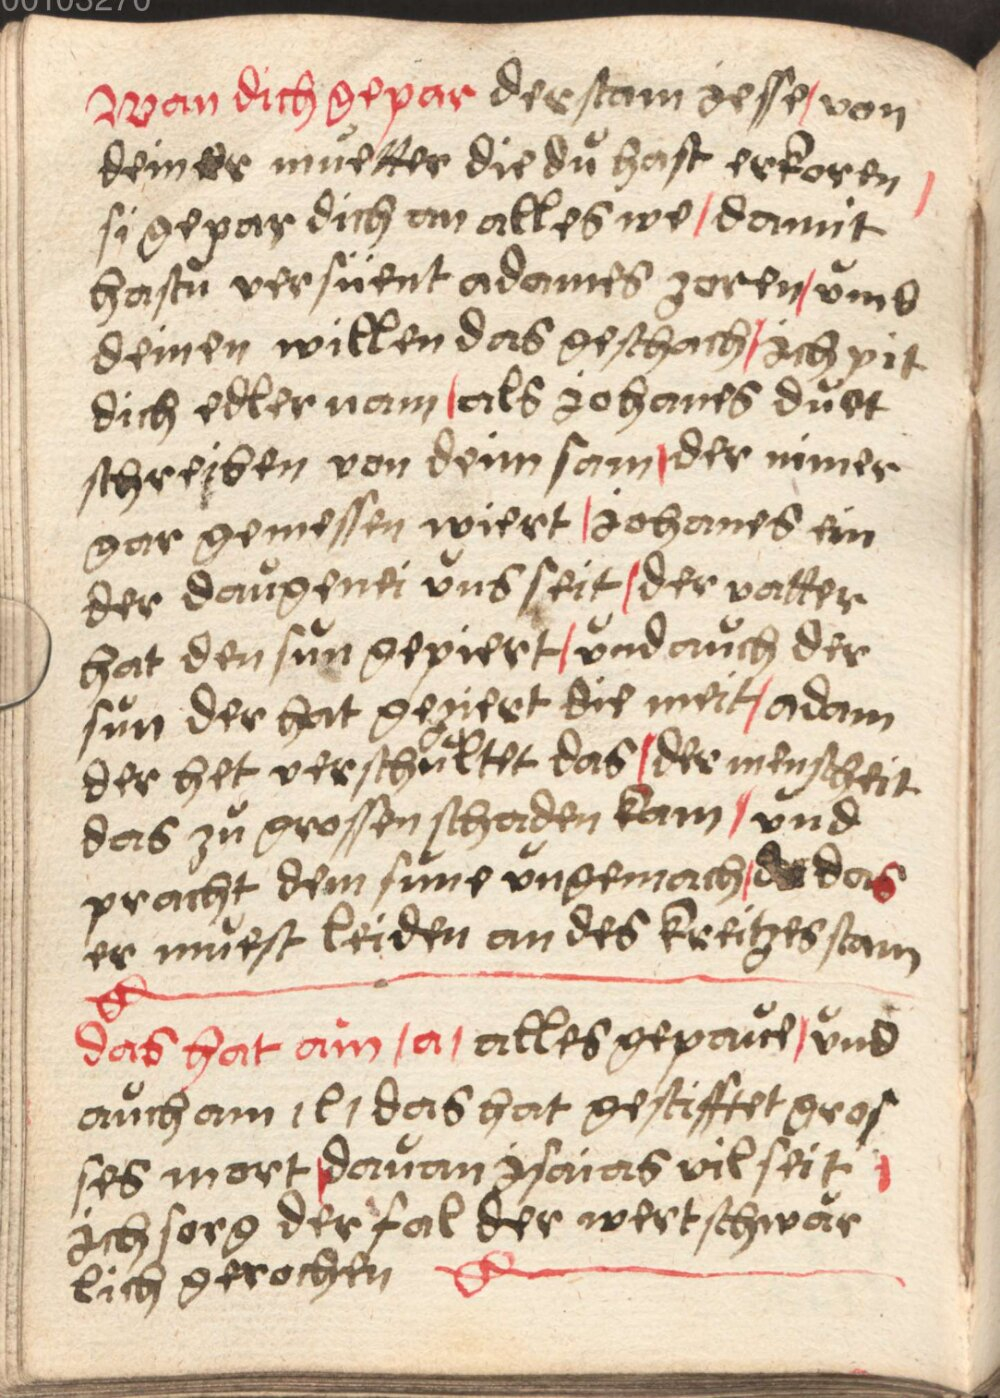 00103270
Wan dich gepar der stam jesse / von
deiner mueter die dů hast erkoren /
si gepar dich an alles we / damit
hastu versüent adames zoren / vmb
deinen willen das geschach / ich pit
dich edler nam / als johanes duet
schreiben von deim sam / der nimer
gar gemessen wiert / johanes ein
der daugenei vns seit / der vatter
hat den sun gepiert / vnd auch der
sun der hat geziert die meit / adam
der het verschultet das / der menscheit
das zu grossen schaden kam / vnd
pracht dem sune vngemach / das
er muest leiden an des kreitzes stam
das hat ain / a / alles gepauce / vnd
auch am / l / das hat gestifftet gros
ses mort / dauan jsaias vil seit /
ich sorg der fal der wert schwär
lich gerochen